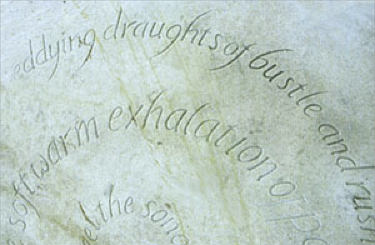 eddying draughts of bustle and rush
soft warm exhalation of
the